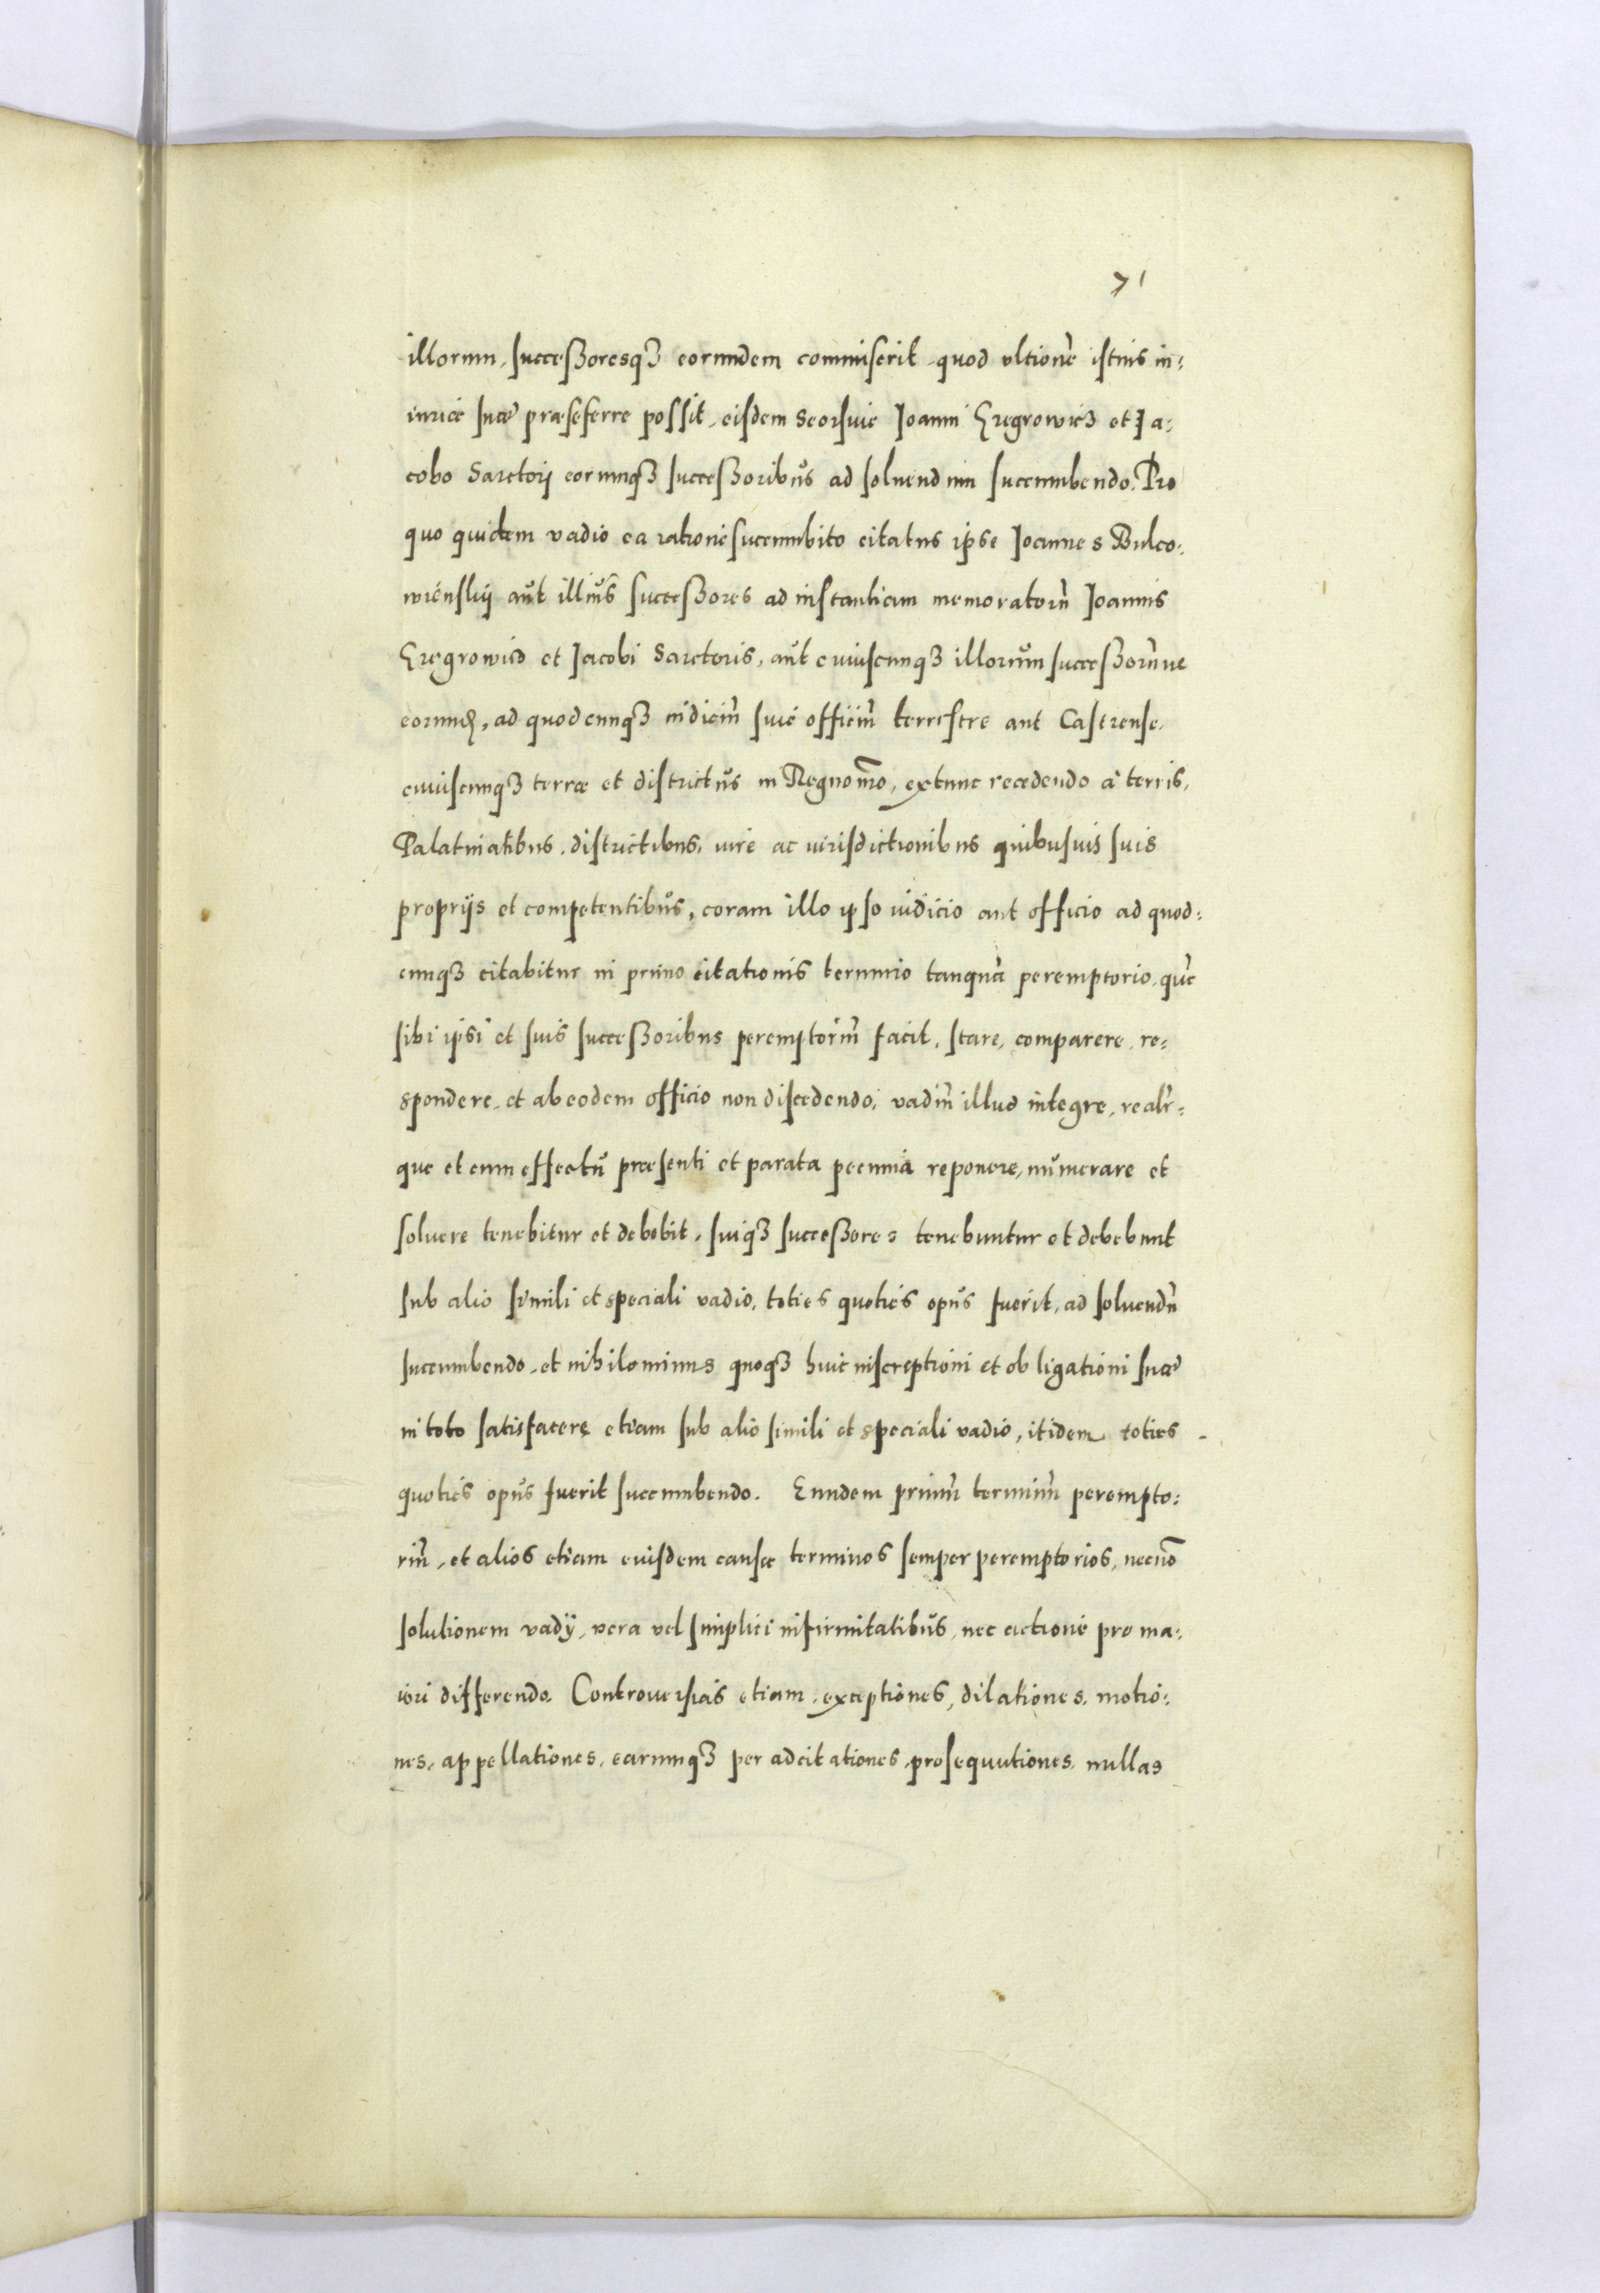 71
illorum, successoresqꝫ eorundem commiserit, quod vltionẽ istius in-
iuriæ suæ præseferre possit, eisdem seorsiue Joanni Gregrowicz et Ja-
cobo Sartorij eorumqꝫ successoribus ad soluendum succumbendo. Pro
quo quidem vadio ea ratione succumbito citatus ipse Joannes Bulco-
wienskij aut illius successores ad instantiam memoratorũ Joannis
Gregrowicz et Jacobi Sartoris, aut cuiuscunqꝫ illorum successorũue
eorund, ad quodcunqꝫ iudiciũ siue officiũ terrestre aut Castrense,
cuiuscunqꝫ terræ et districtus in Regno nr̃o, extunc recedendo à terris,
Palatinatibus, districtibus, iure ac iurisdictionibus quibusuis suis
proprijs et competentibus, coram illo ipso iudicio aut officio ad quod-
cunqꝫ citabitur in primo citationis termino tanquã peremptorio, quẽ
sibi ipsi et suis successoribus peremptoriũ facit, stare, comparere, re-
spondere, et ab eodem officio non discedendo, vadiũ illud integre, realr̃-
que et cum effectu præsenti et parata pecunia reponere, numerare et
soluere tenebitur et debebit, suiqꝫ successores tenebuntur et debebunt
sub alio simili et speciali vadio, toties quoties opus fuerit, ad soluendũ
succumbendo, et nihilominus quoqꝫ huic inscriptioni et obligationi suæ
in toto satisfacere etiam sub alio simili et speciali vadio, itidem toties
quoties opus fuerit succumbendo. Eundem primũ terminũ perempto-
riũ, et alios etiam eiusdem causæ terminos semper peremptorios, necnõ
solutionem vadij, vera vel simplici infirmitatibus, nec actione pro ma-
iori differendo. Controuersias etiam, exceptiones, dilationes, motio-
nes, appellationes, earumqꝫ per adcitationes, prosequutiones, nullas